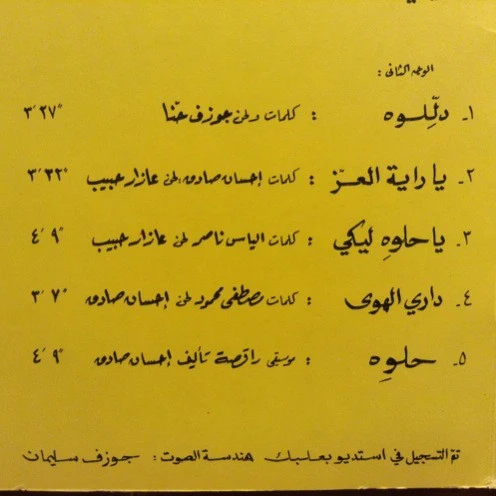 الوجه الثاني :
١ـ دلّلوه : كلمات ولحن جوزف حنّا ٢٧ً ٣َ
٢ـ يا راية العزّ : كلمات إحسان صادق، لحن عازار حبيب ٣٢ً ٣َ
٣ـ يا حلوهِ ليكي : كلمات الياس ناصر لحن عازار حبيب ٩ً ٤َ
٤ـ داري الهوى : كلمات مصطفى محمود لحن إحسان صادق ٧ً ٣َ
٥ـ حلوهِ : موسيقى راقصة تأليف إحسان صادق ٩ً ٤َ
تمّ التسجيل في استديو بعلبك هندسة الصوت : جوزف سليمان